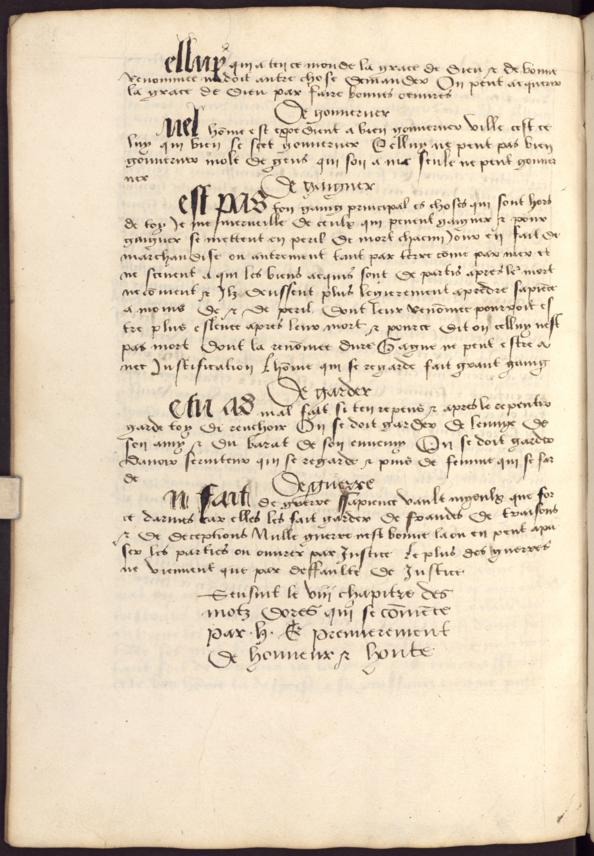 elluy qui a en ce monde la grace de dieu & de bonne
renommee ne doit autre chose demander On peut acquerir
la grace de dieu par faire bonnes oeuvres
De gouverner
Nel hõme est expedient a bien gouverner ville cest ce
luy qui bien se scet gouverner Celluy ne peut pas bien
gouverner molt de gens qui son ame seule ne peut gouver
ner
De gaigner
est pas ton gaing principal es choses qui sont hors
de toy Je me merveille de ceulx qui pevent gaigner & pour
gaigner se mettent en peril de mort chacun jour en fait de
marchandise ou autrement tant par terre cõme par mer et
ne scevent a qui les biens acquis sont departis apres le mort
ne coment & Ilz deussent plus legierement aprendre sapiẽce
a moins de & de peril dont leur renõmee pourroit es
tre plus apres leur mort & pource dit on celluy nest
pas mort dont la renõmee dure Gaigne ne peut estre a
vec Justification Lhõme qui se regarde fait grant gaing
De garder
e tu as mal fait si ten repens & apres le repentir
garde toy di renchoir On se doit garder de lenvye de
son amy & du barat de son ennemy On se doit garder
davoir serviteur qui se regarde & puis de femme qui se far
de
De guerre
N fait de guerre Sapience vault myeulx que for
ce darmes car elles les fait garder de fraudes de traisons
& de deceptions Nulle guerre nest bonne la ou en peut apai
ser les parties ou ouvrer par Justice Le plus des guerres
ne viennent que par deffaulte de Justice
Sensuit le viii chapitre des
motz dores qui se cõmẽce
par .h. Et premierement
De honneur & honte